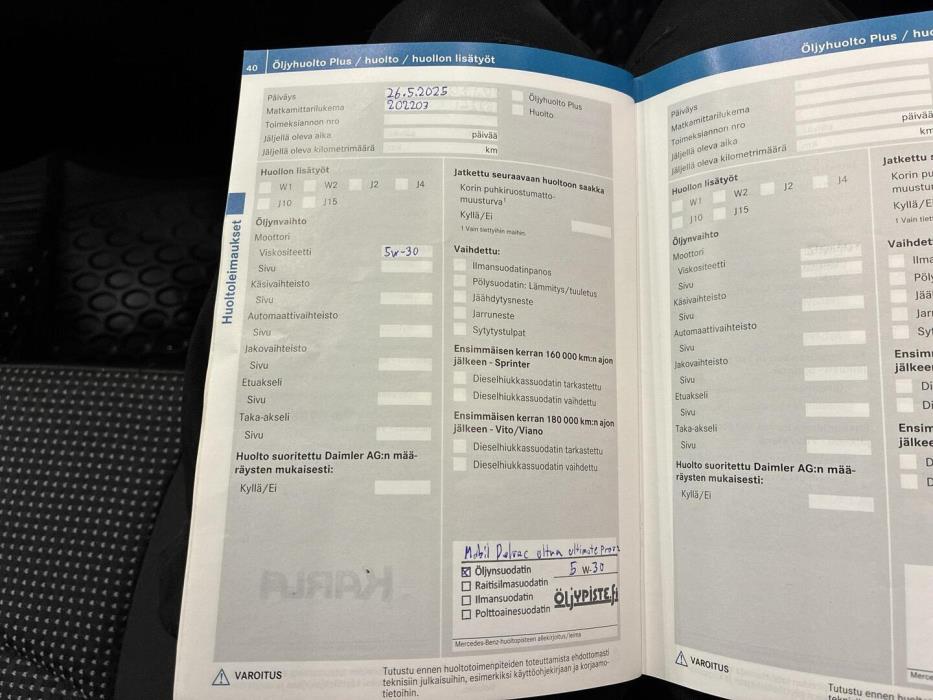 40 Öljyhuolto Plus / huolto / huollon lisätyöt
Päiväys 26.5.2025
Matkamittarilukema 202207
Toimeksiannon nro
Jäljellä oleva aika päivää
Jäljellä oleva kilometrimäärä km
Öljyhuolto Plus
Huolto
Huollon lisätyöt
W1 W2 J2 J4
J10 J15
Öljynvaihto
Moottori
Viskositeetti 5w-30
Sivu
Käsivaihteisto
Sivu
Automaattivaihteisto
Sivu
Jakovaihteisto
Sivu
Etuakseli
Sivu
Taka-akseli
Sivu
Huolto suoritettu Daimler AG:n mää-
räysten mukaisesti:
Kyllä/Ei
Jatkettu seuraavaan huoltoon saakka
Korin puhkiruostumatto-
muusturva¹
Kyllä/Ei
¹ Vain tiettyihin maihin.
Vaihdettu:
Ilmansuodatinpanos
Pölysuodatin: Lämmitys/tuuletus
Jäähdytysneste
Jarruneste
Sytytystulpat
Ensimmäisen kerran 160 000 km:n ajon
jälkeen - Sprinter
Dieselhiukkassuodatin tarkastettu
Dieselhiukkassuodatin vaihdettu
Ensimmäisen kerran 180 000 km:n ajon
jälkeen - Vito/Viano
Dieselhiukkassuodatin tarkastettu
Dieselhiukkassuodatin vaihdettu
Mobil Delvac ultra ultimate
Öljynsuodatin 5w-30
Raitisilmasuodatin
Ilmansuodatin
Polttoainesuodatin
ÖLJYPISTE.fi
Mercedes-Benz-huoltopisteen allekirjoitus/leima
Huoltoleimaukset
VAROITUS
Tutustu ennen huoltotoimenpiteiden toteuttamista ehdottomasti
teknisiin julkaisuihin, esimerkiksi käyttöohjekirjaan ja korjaamo-
tietoihin.
Öljyhuolto Plus / huo
Päiväys
Matkamittarilukema
Toimeksiannon nro
Jäljellä oleva aika päivää
Jäljellä oleva kilometrimäärä km
Huollon lisätyöt
W1 W2 J2 J4
J10 J15
Öljynvaihto
Moottori
Viskositeetti
Sivu
Käsivaihteisto
Sivu
Automaattivaihteisto
Sivu
Jakovaihteisto
Sivu
Etuakseli
Sivu
Taka-akseli
Sivu
Huolto suoritettu Daimler AG:n mää-
räysten mukaisesti:
Kyllä/Ei
Jatkettu s
Korin pu
muustur
Kyllä/E
¹ Vain tiett
Vaihdet
Ilma
Pöly
Jää
Jarr
Sy
Ensim
jälkee
Di
Di
Ensim
jälkee
D
D
Merce
VAROITUS
Tutustu ennen huol